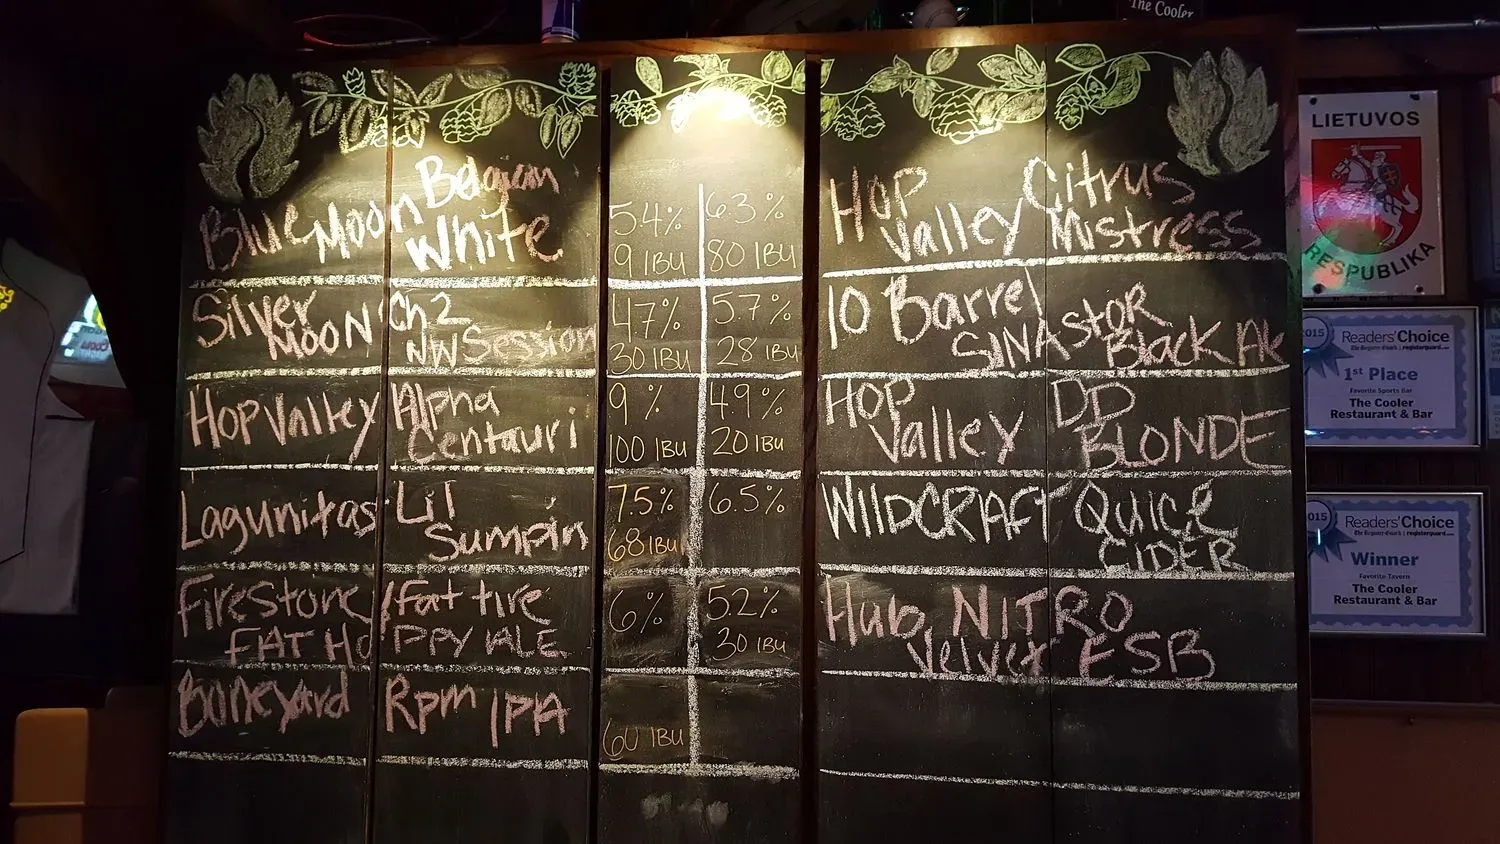 The Cooler
Blue Moon Belgian White 5.4% 9 IBU
Silver Moon Ch2 NW Session 47% 30 IBU
Hop Valley Alpha Centauri 9% 100 IBU
Lagunitas Lil Sumpin 7.5% 68 IBU
Firestone / Fat tire 6%
FAT HOPPY ALE
Boneyard Rpm IPA 60 IBU
6.3% 80 IBU Hop Valley Citrus Mistress
5.7% 28 IBU 10 Barrel SINAstor Black Ale
4.9% 20 IBU Hop Valley DD BLONDE
6.5% WILDCRAFT QUICE CIDER
52% 30 IBU Hub NITRO Velvet ESB
LIETUVOS
RESPUBLIKA
2015
Readers' Choice
The Register-Guard | registerguard.com
1st Place
Favorite Sports Bar
The Cooler
Restaurant & Bar
2015
Readers' Choice
The Register-Guard | registerguard.com
Winner
Favorite Tavern
The Cooler
Restaurant & Bar